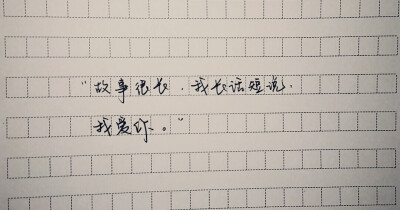 “故事很长,我长话短说.
我爱你。”